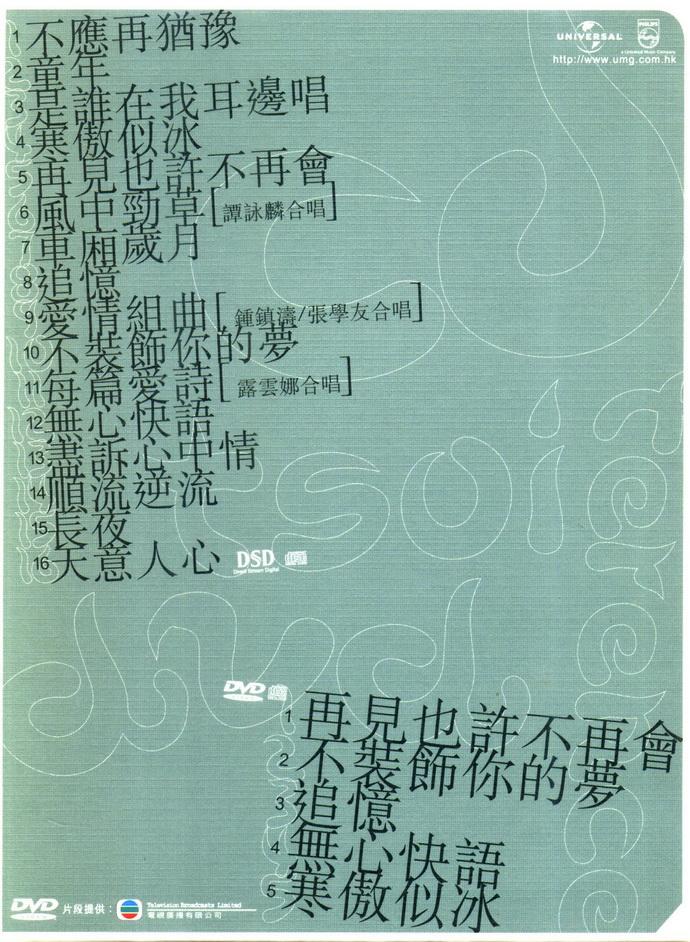 1 不應再猶豫
2 童年
3 是誰在我耳邊唱
4 寒傲似冰
5 再見也許不再會
6 風中勁草[譚詠麟合唱]
7 車廂歲月
8 追憶
9 愛情組曲[鍾鎮濤/張學友合唱]
10 不裝飾你的夢
11 每篇愛詩[露雲娜合唱]
12 無心快語
13 盡訴心中情
14 順流逆流
15 長夜
16 天意人心
DSD
Direct Stream Digital
UNIVERSAL
PHILIPS
a Universal Music Company
http://www.umg.com.hk
DVD
1 再見也許不再會
2 不裝飾你的夢
3 追憶
4 無心快語
5 寒傲似冰
DVD 片段提供：
Television Broadcasts Limited
電視廣播有限公司